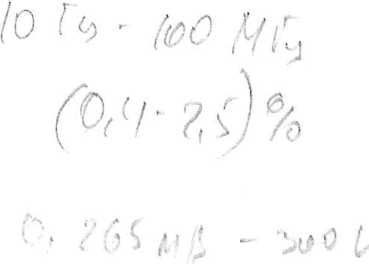 10 Гц - 100 МГц
(0,4 - 2,5) %
0,265 мВ - 300 В